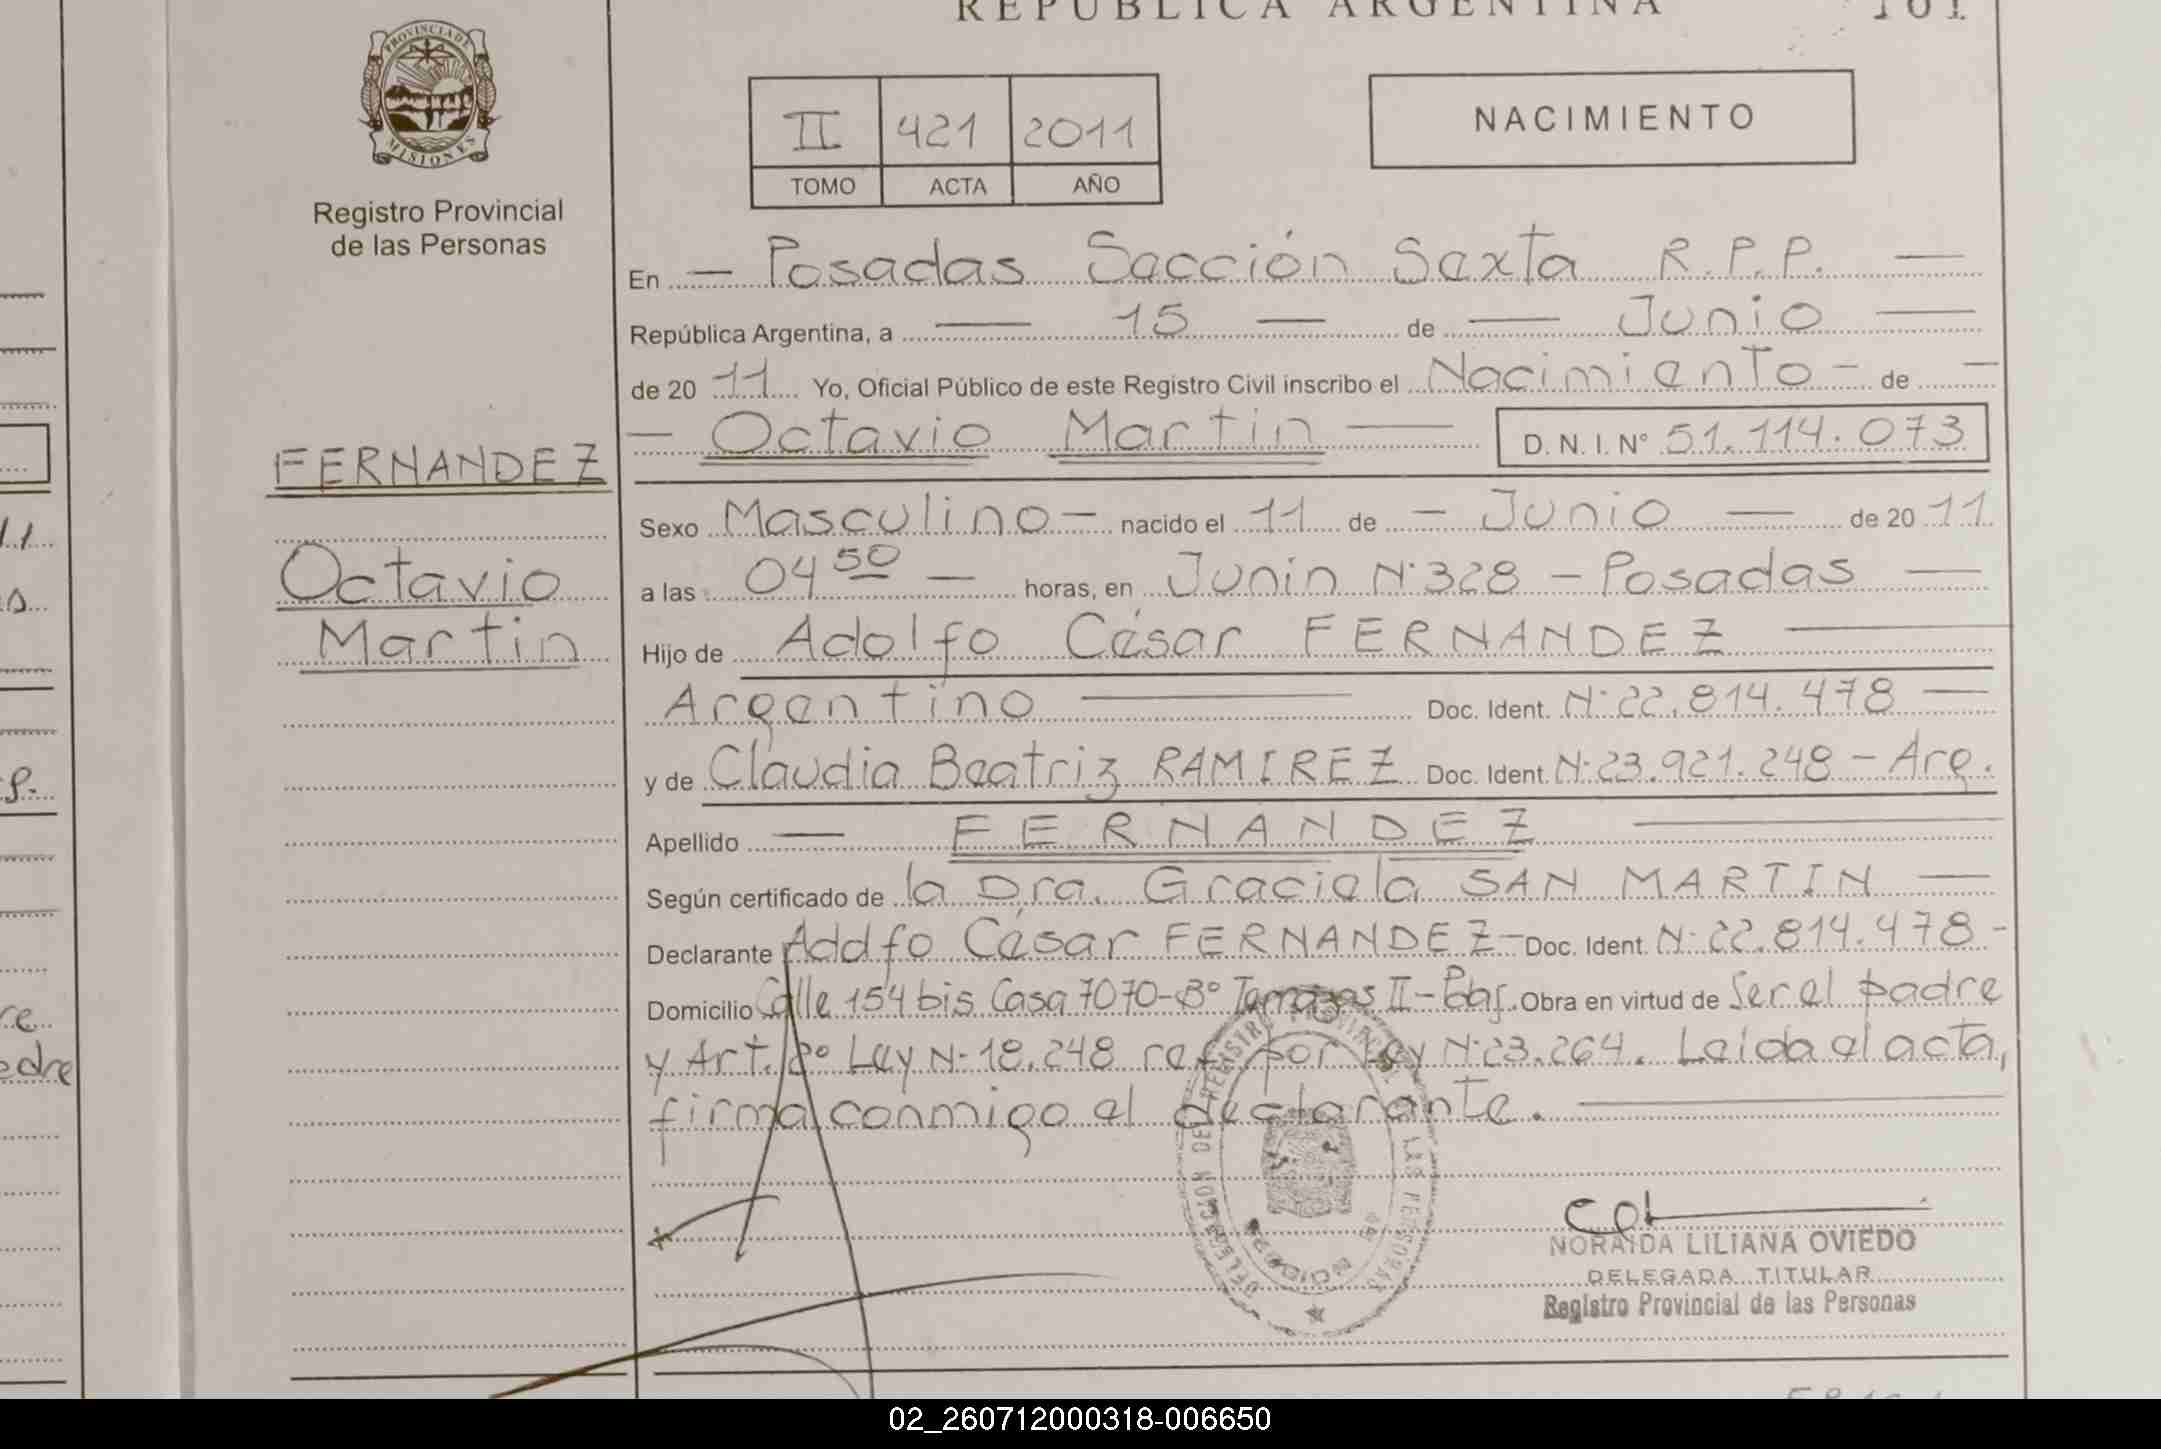 REPUBLICA ARGENTINA
101
PROVINCIA DE
MISIONES
Registro Provincial
de las Personas
II 421 2011
TOMO ACTA AÑO
NACIMIENTO
En — Posadas Sección Sexta R.P.P. —
República Argentina, a — 15 — de — Junio —
de 20 11 Yo, Oficial Público de este Registro Civil inscribo el Nacimiento — de —
— Octavio Martin — D. N. I. N° 51.114.073
FERNANDEZ
Octavio
Martin
Sexo Masculino — nacido el 11 de — Junio — de 20 11
a las 04 50 — horas, en Junin N° 328 — Posadas —
Hijo de Adolfo César FERNANDEZ —
Argentino — Doc. Ident. N° 22.814.478 —
y de Claudia Beatriz RAMIREZ Doc. Ident. N° 23.921.248 — Arg.
Apellido — FERNANDEZ —
Según certificado de la Dra. Graciela SAN MARTIN —
Declarante Adolfo César FERNANDEZ — Doc. Ident. N° 22.814.478 -
Domicilio Calle 154 bis Casa 7070 - B° II - Obra en virtud de Ser el padre
y Art. 2° Ley N° 18.248 por Ley N° 23.264. Leida el acta,
firma conmigo el declarante. —
DELEGACION DEL REGISTRO PROVINCIAL DE LAS PERSONAS
NORAIDA LILIANA OVIEDO
DELEGADA TITULAR
Registro Provincial de las Personas
02_260712000318-006650